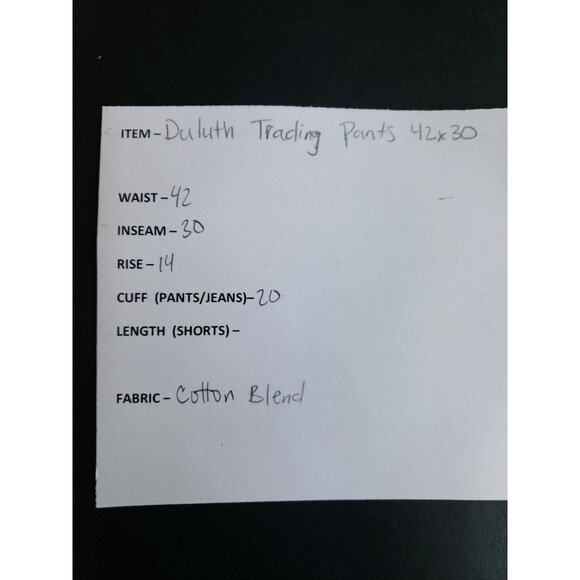 ITEM – Duluth Trading Pants 42x30
WAIST – 42
INSEAM – 30
RISE – 14
CUFF (PANTS/JEANS)– 20
LENGTH (SHORTS) –
FABRIC – Cotton Blend